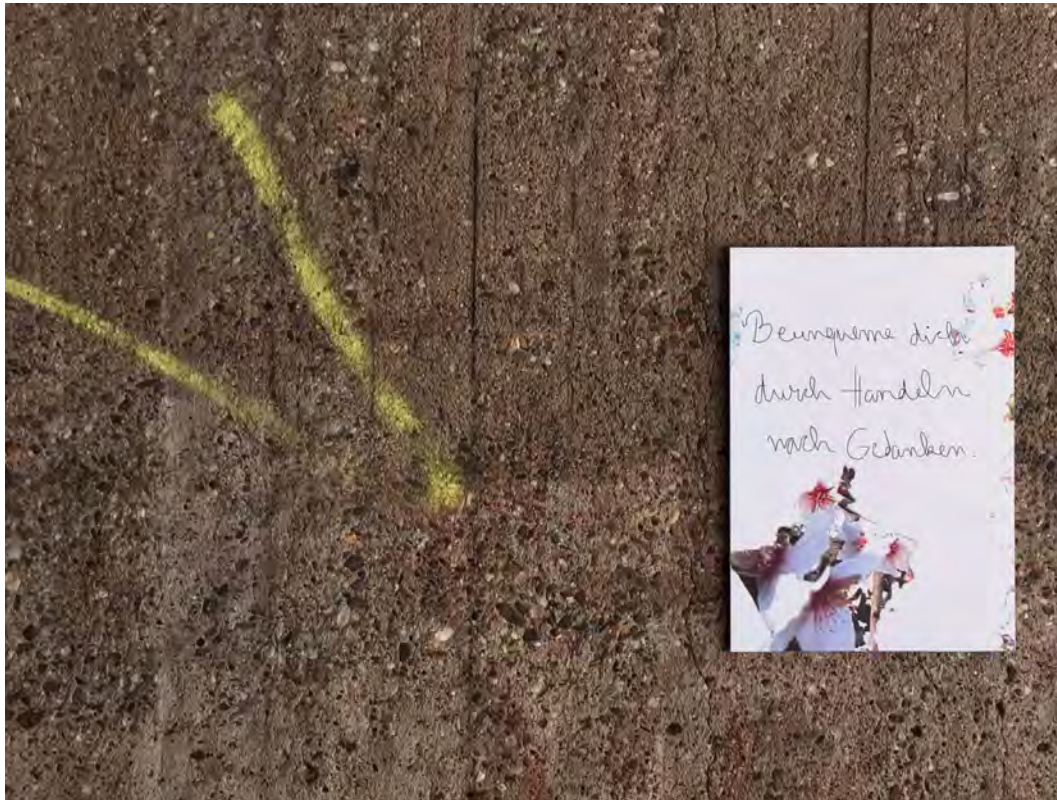 Beunqueme dich
durch Handeln
nach Gedanken.